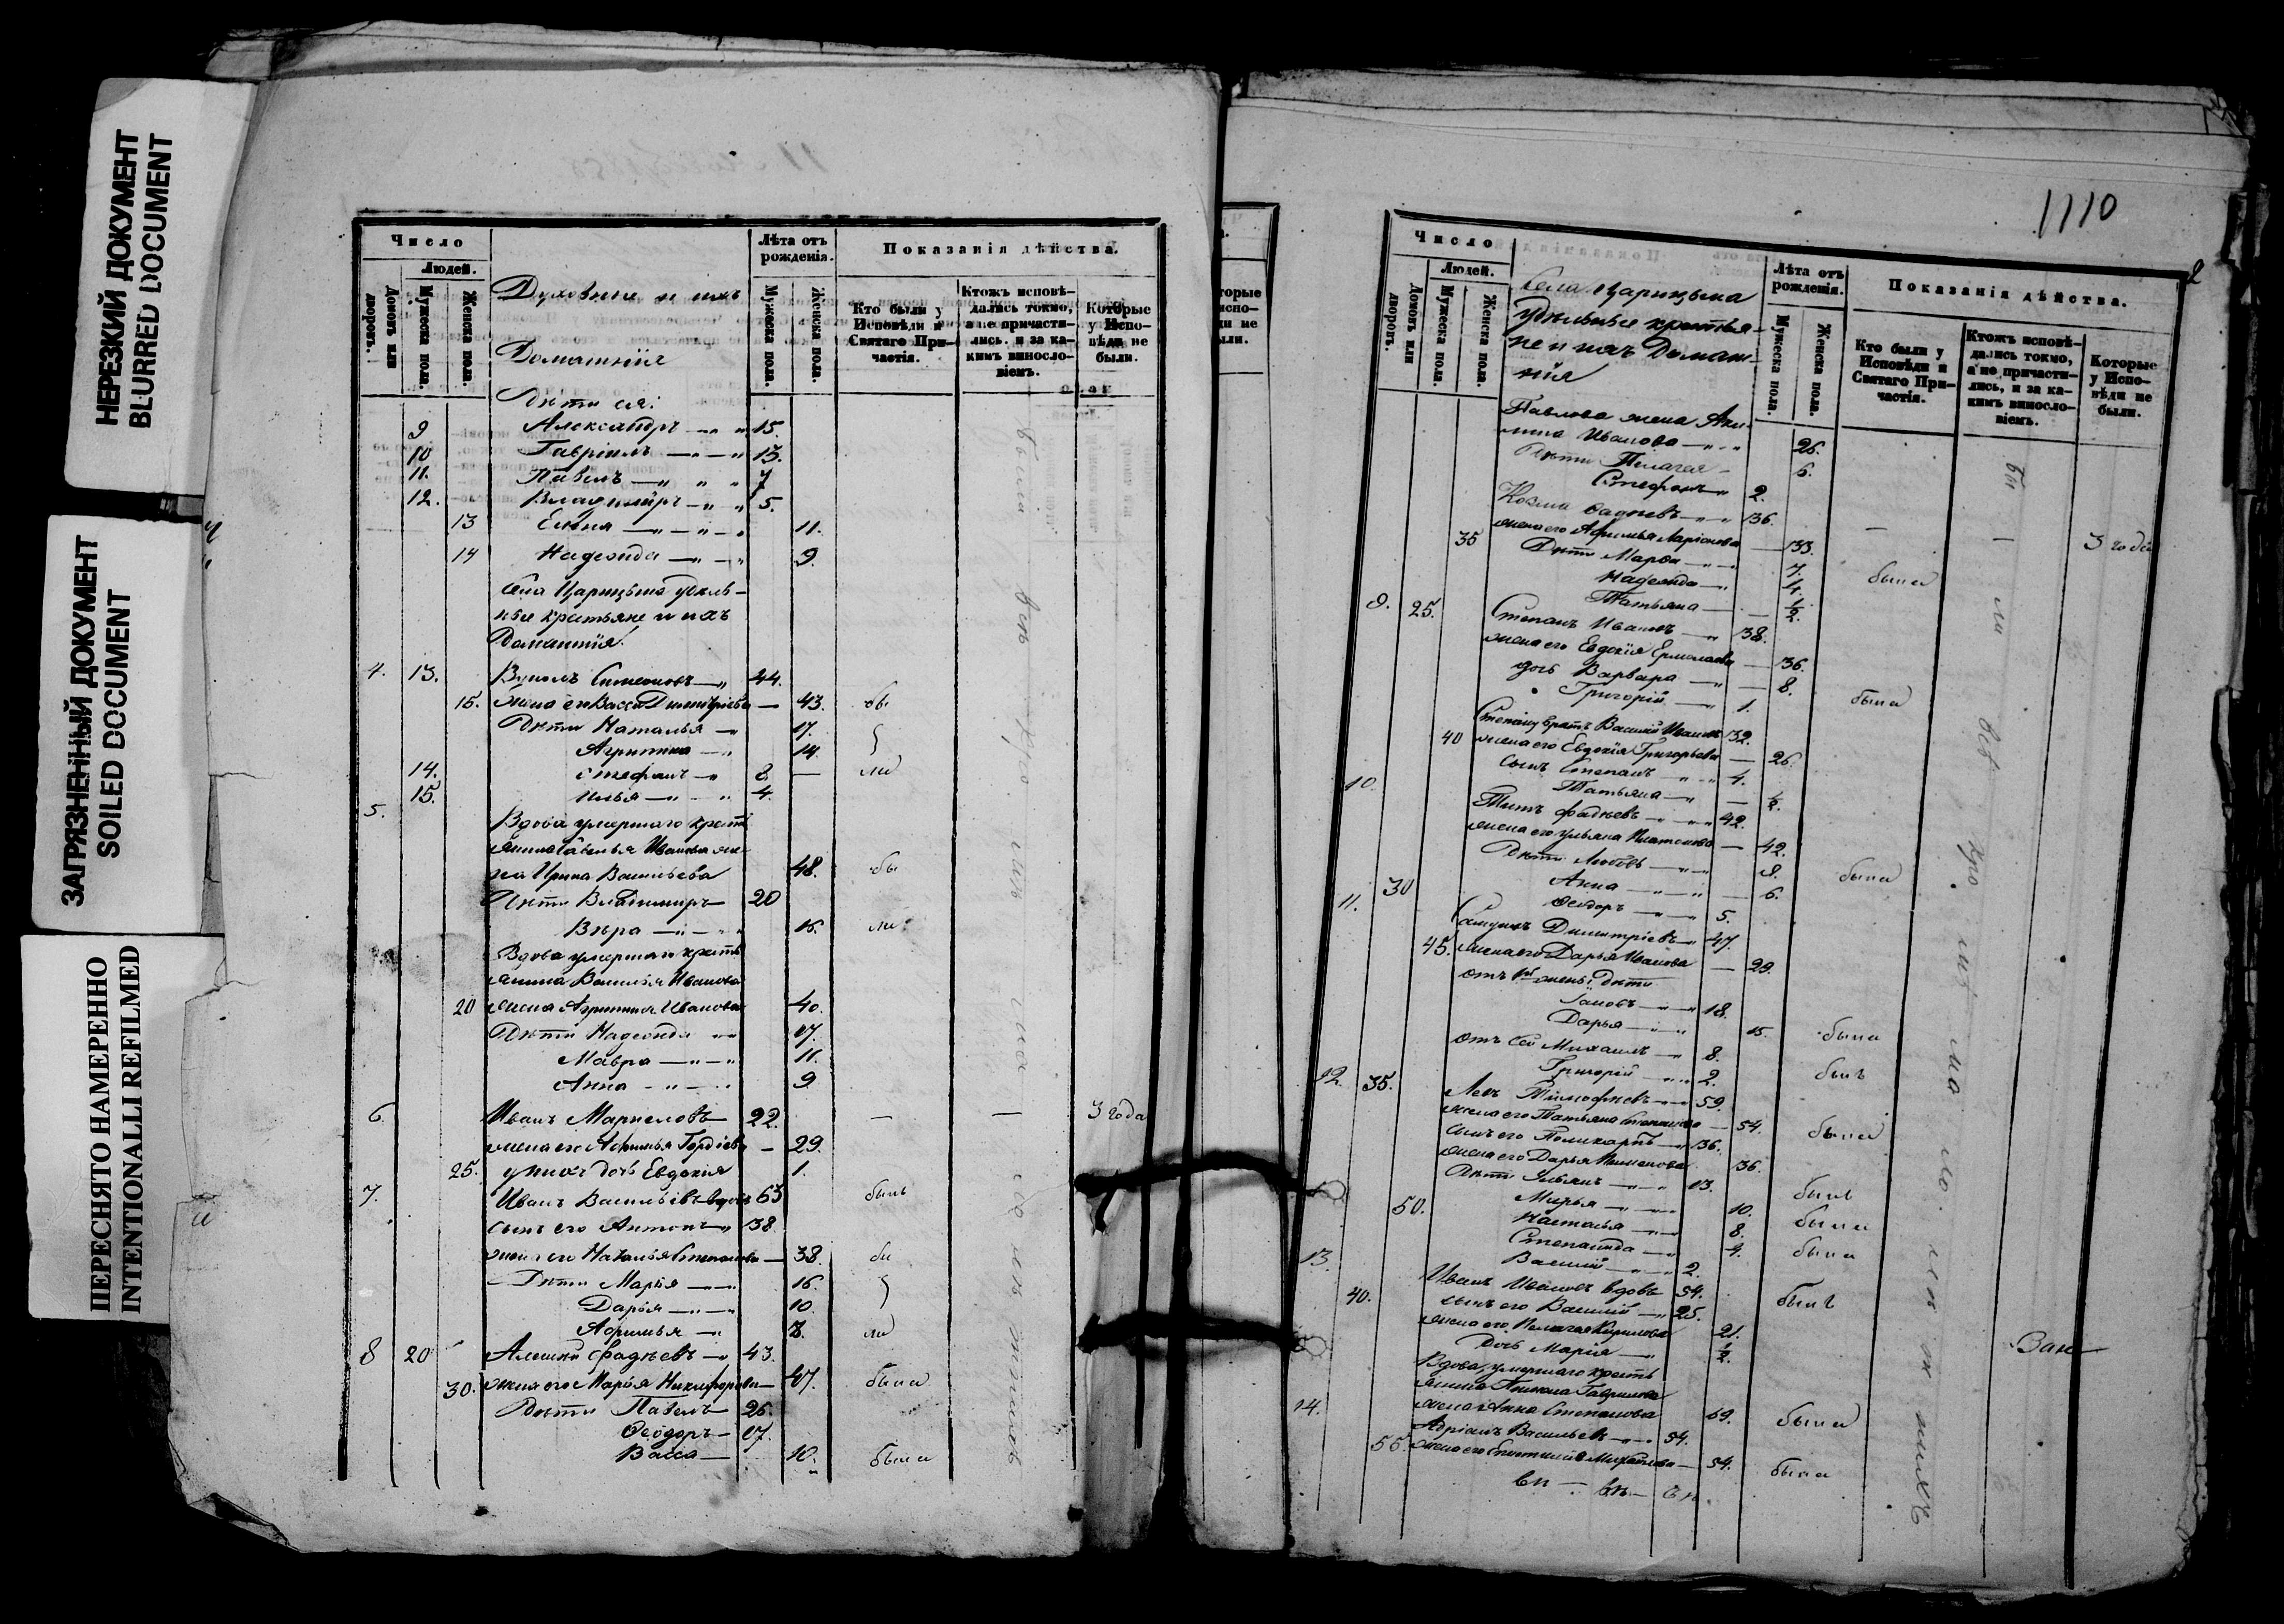 НЕРЕЗКИЙ ДОКУМЕНТ
BLURRED DOCUMENT
ЗАГРЯЗНЕННЫЙ ДОКУМЕНТ
SOILED DOCUMENT
ПЕРЕСНЯТО НАМЕРЕННО
INTENTIONALLI REFILMED
Число
Людей.
Домовъ или дворовъ.
Мужеска пола.
Женска пола.
Духовные и ихъ
Домашнія
Лѣта отъ рожденія.
Мужеска пола.
Женска пола.
Показанія дѣйства.
Кто были у Исповѣди и Святаго Причастія.
Ктожъ исповѣдались токмо, а не причастились, и за какимъ винословіемъ.
Которые у Исповѣди не были.
Дѣти ея:
9 Александръ 15.
10 Гавріилъ 13.
11. Павелъ 7
12. Владиміръ 5.
13 Елена 11.
14 Надежда 9.
Села Царицына удѣль-
ные крестьяне и ихъ
Домашнія.
4. 13. Симеоновъ 44.
15. жена его Васса Димитріева — 43. бы
Дѣти Наталья 17.
Агрипина 14
14. Стефанъ 8. — ли
15. Илья 4.
5. Вдова умершаго кресть
янина Василья Иванова же
на Ирина Васильева 48. бы
Дѣти Владимиръ 20
Вѣра 16. ли
Вдова умершаго кресть
янина Василья Иванова
20 жена Агрипина Иванова 40.
Дѣти Надежда 17.
Мавра 11.
Анна 9
6 Иванъ Маркеловъ 22. — — 3 года
жена его Афимья Гордіева — 29.
25. у нихъ дочь Евдокія 1.
7. Иванъ Васильевъ вдовъ 63 былъ
сынъ его Антонъ 38
жена его Наталья Степанова — 38. бы
Дѣти Марья 16.
Дарья 10.
Афимья 8. ли
8 20 Фадѣевъ 43.
30. жена его Марья Никифорова — 47. была
Дѣти Павелъ 26.
Ѳеодоръ 17.
Васса 10. была
1110
2
Число
Людей.
Домовъ или дворовъ.
Мужеска пола.
Женска пола.
Села Царицына
Удѣльные крестья-
не и ихъ Домаш-
нія
Лѣта отъ рожденія.
Мужеска пола.
Женска пола.
Показанія дѣйства.
Кто были у Исповѣди и Святаго Причастія.
Ктожъ исповѣдались токмо, а не причастились, и за какимъ винословіемъ.
Которые у Исповѣди не были.
Павлова жена Аки-
лина Иванова 26.
Дѣти Пелагея 6.
Стефанъ 2.
Козма Фадѣевъ 36. — — 3 года
35 жена его Афимья Ларіонова — 33.
Дѣти Марфа 7. была
Надежда 4
Татьяна 1/2.
9. 25. Степанъ Ивановъ 38.
жена его Евдокія Ермолаева — 36.
дочь Варвара — 8.
Григорій 1. была
Степану братъ Василій Ивановъ 32.
40 жена его Евдокія Григорьева — 26.
сынъ Степанъ 4.
Татьяна — 1/2.
10. Титъ Фадѣевъ 42.
жена его Ульяна — 42.
Дѣти Любовь 9. была
Анна — 6.
30 Ѳеодоръ 5.
11. Димитріевъ 47.
45. жена его Дарья Иванова — 29.
отъ 1й жены дѣти
18.
Дарья 15. была
отъ сей Михаилъ 8.
Григорій 2. былъ
12. 35. Левъ Тимофѣевъ 59.
жена его Татьяна — 54. была
сынъ его Поликарпъ 36.
жена его Дарья 36.
Дѣти 13. былъ
Марья 10. была
50. Наталья 8. была
Степанида 4.
Василій 2.
13. Иванъ Ивановъ вдовъ 54. былъ
40. сынъ его Василій 25.
жена его Пелагея Кирилова 21.
дочь Марія 1/2.
Вдова умершаго кресть
янина Гаврилова
жена Анна Степанова 69. была
14. Адріанъ Васильевъ 54.
55. жена его Михайлова — 54. была